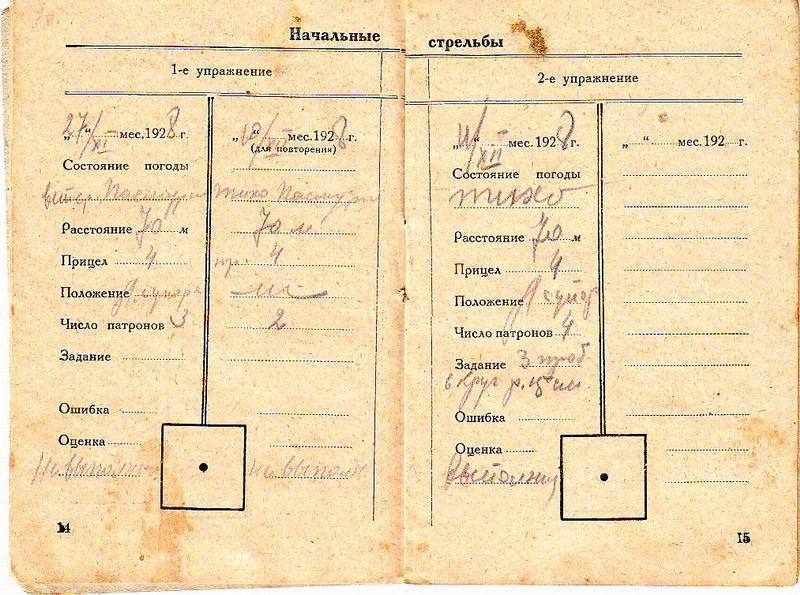 Начальные стрельбы
1-е упражнение
„27/XI“ мес. 1928 г.
Состояние погоды
ветер Пасмурн
Расстояние 70 м
Прицел 4
Положение
Число патронов 3
Задание
Ошибка
Оценка
Не выполнил
14
„10/XII“ мес. 1928 г.
(для повторения)
тихо Пасмурн
70 м
пр. 4
2
Не выполн
2-е упражнение
„11/XII“ мес. 1928 г.
Состояние погоды
тихо
Расстояние 70 м
Прицел 4
Положение
Число патронов 4
Задание 3 проб
в круг
Ошибка
Оценка
выполнил
„ “ мес. 192 г.
15